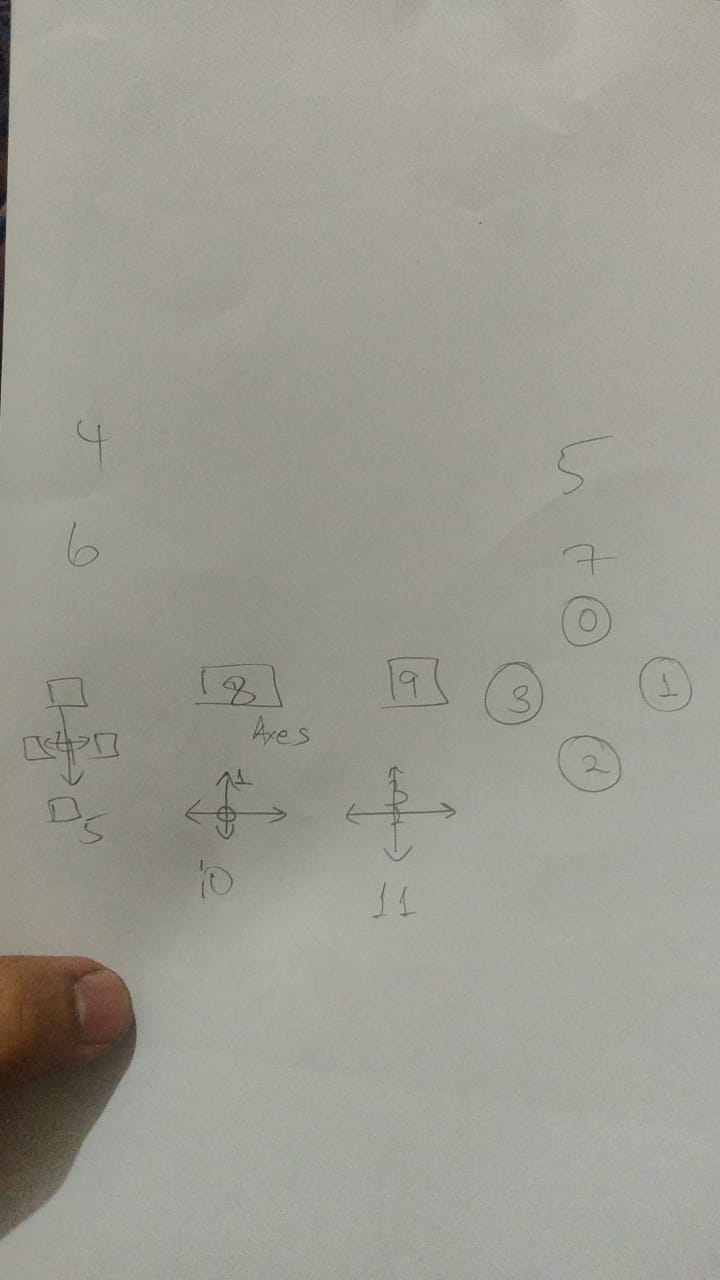 4 5
6 7
0
8 9 3 1
Axes
2
1
5
10 11